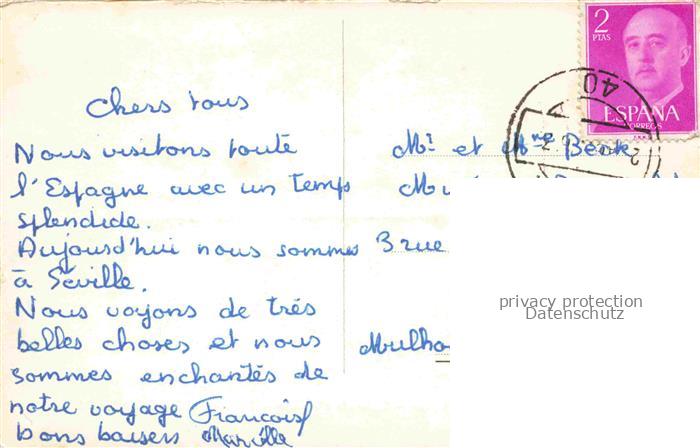 2
PTAS
ESPAÑA
CORREOS
40
Chers tous
Nous visitons toute
l'Espagne avec un temps
splendide.
Aujourd'hui nous sommes
à Séville.
Nous voyons de très
belles choses et nous
sommes enchantés de
notre voyage
bons baisers
Mr et Mme
3 rue
Mulho
privacy protection
Datenschutz